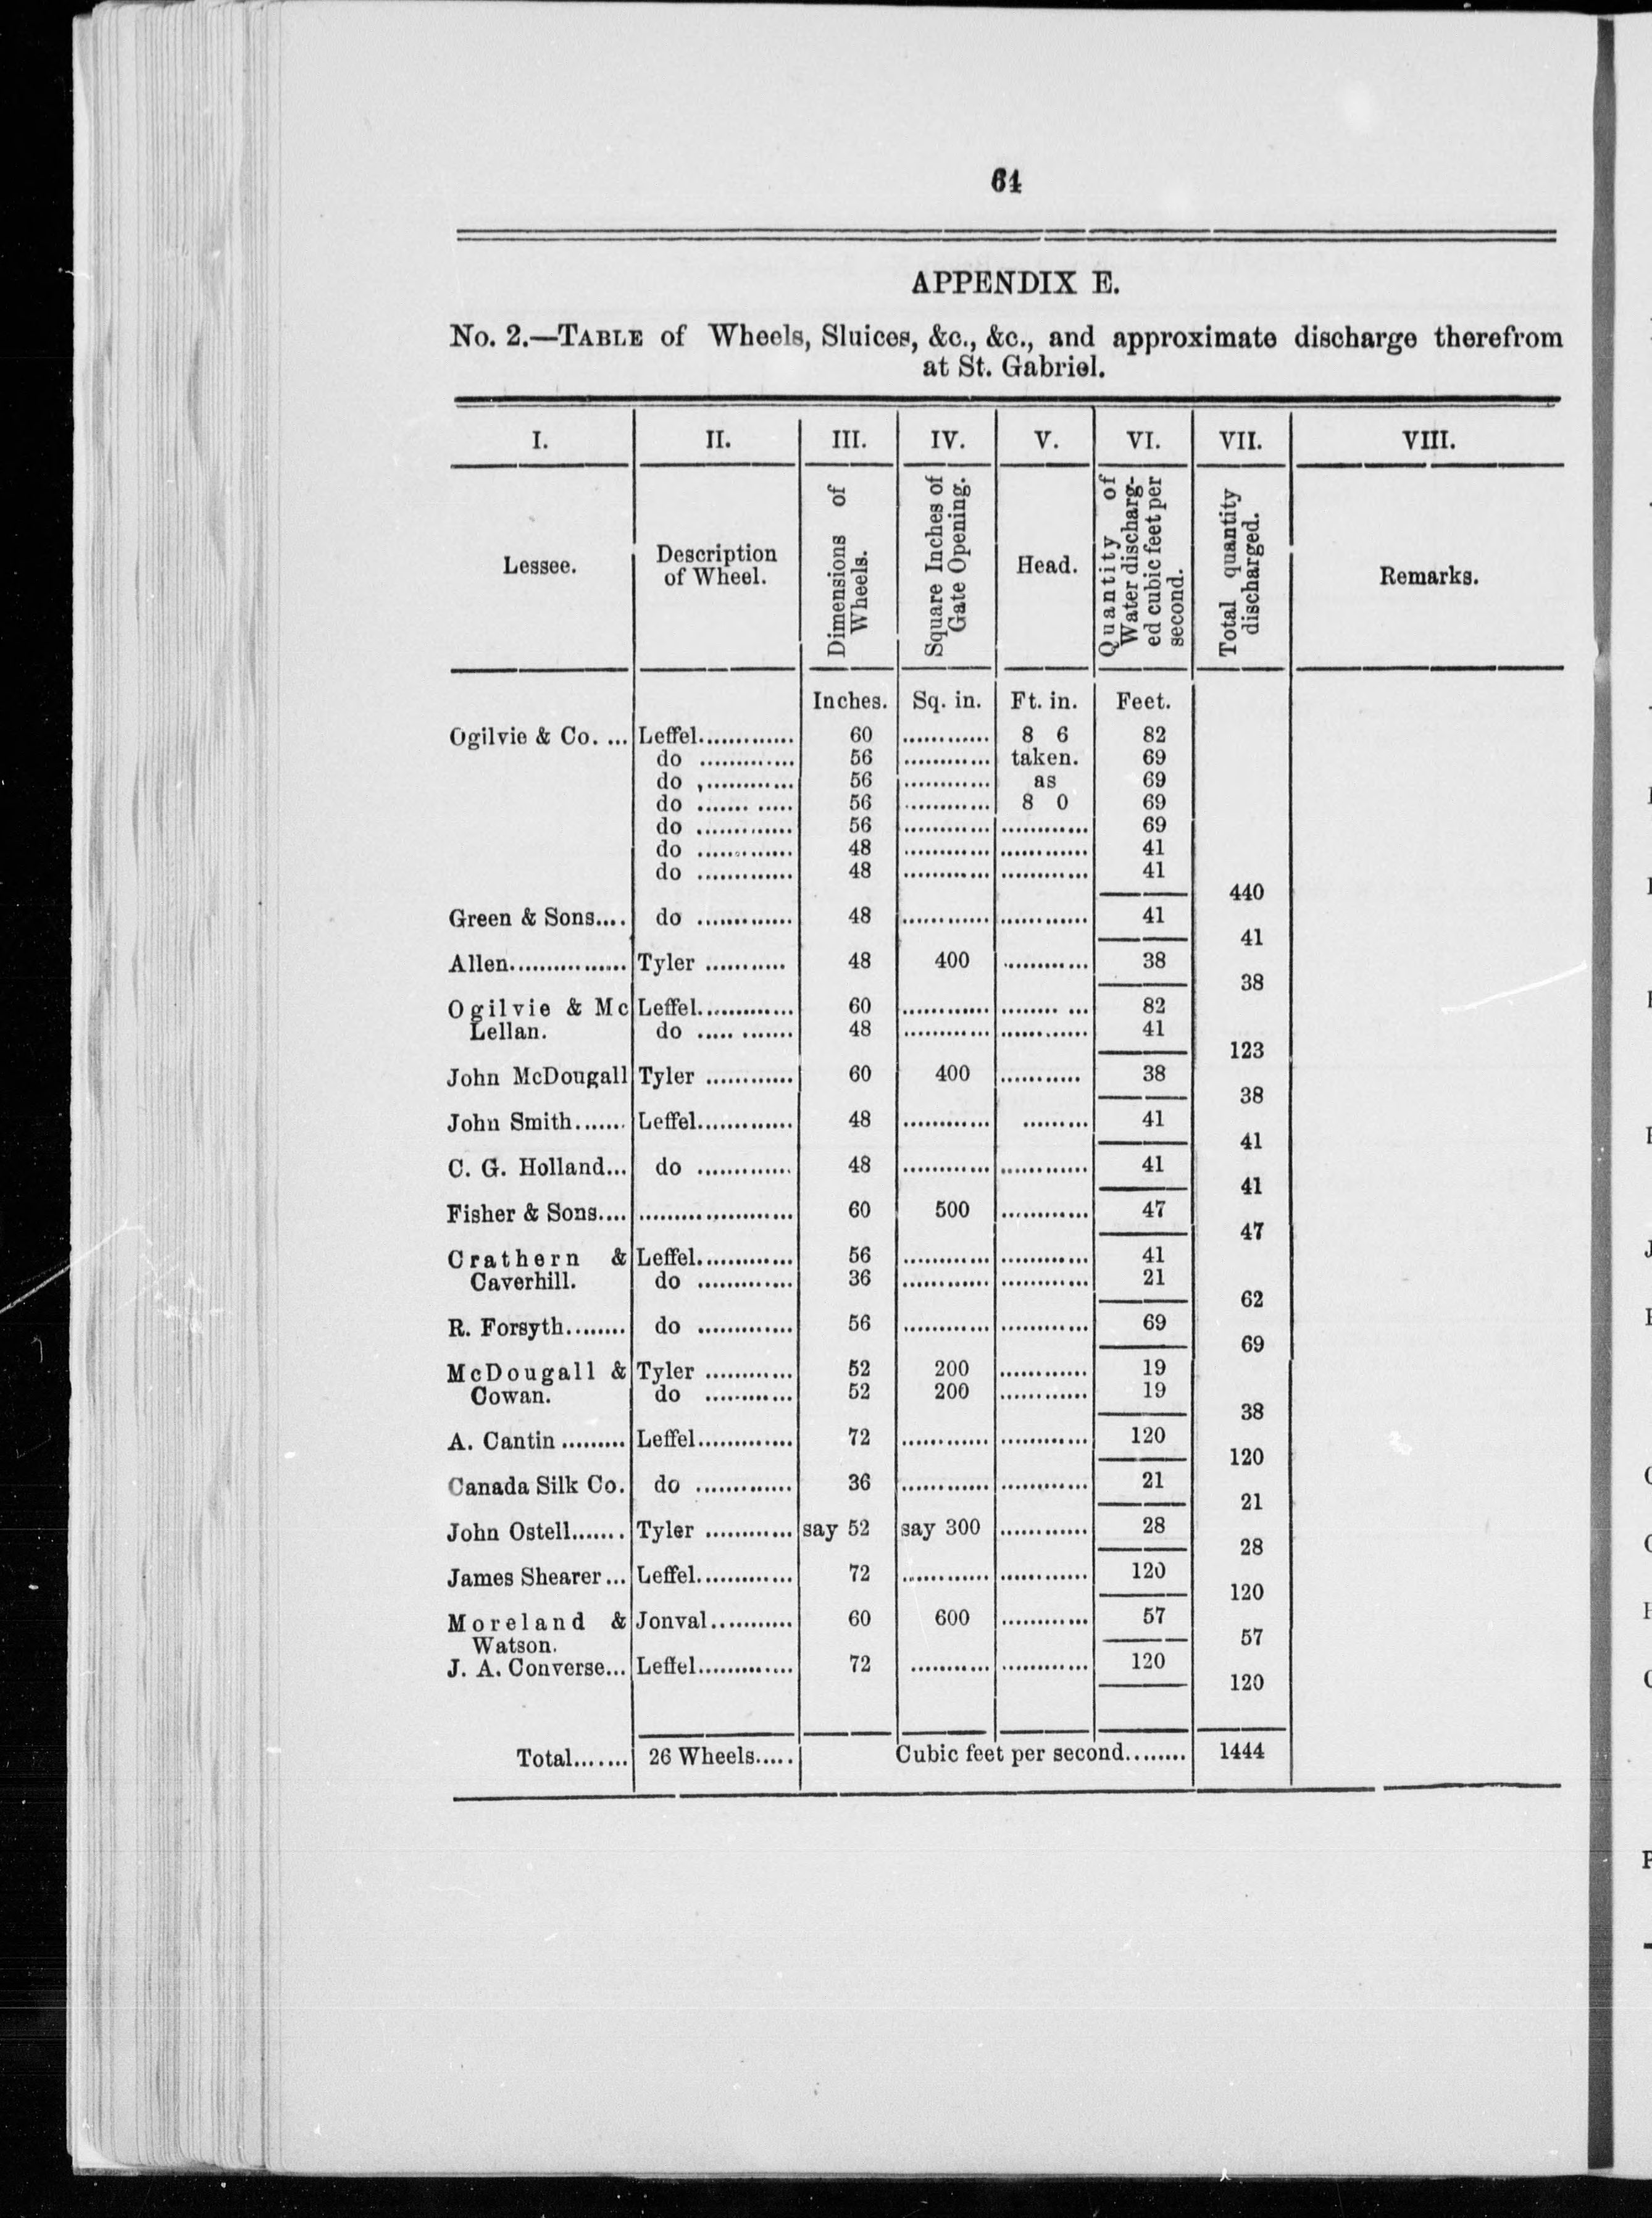 64
APPENDIX E.
No. 2.—TABLE of Wheels, Sluices, &c., &c., and approximate discharge therefrom
at St. Gabriel.
I. II. III. IV. V. VI. VII. VIII.
Lessee. Description of Wheel. Dimensions of Wheels. Square Inches of Gate Opening. Head. Quantity of Water discharg-ed cubic feet per second. Total quantity discharged. Remarks.
Inches. Sq. in. Ft. in. Feet.
Ogilvie & Co. ... Leffel............. 60 ............ 8 6 82
do ............. 56 ............ taken. 69
do ,............ 56 ............ as 69
do ....... ..... 56 ............ 8 0 69
do ............. 56 ............ ............ 69
do ............. 48 ............ ............ 41
do ............. 48 ............ ............ 41
440
Green & Sons.... do ............. 48 ............ ............ 41
41
Allen................ Tyler ........... 48 400 ............ 38
38
Ogilvie & Mc Leffel............. 60 ............ ........ ... 82
Lellan. do ..... ....... 48 ............ ............ 41
123
John McDougall Tyler ............ 60 400 ........... 38
38
John Smith....... Leffel............. 48 ............ ......... 41
41
C. G. Holland... do ............. 48 ............ ............ 41
41
Fisher & Sons.... ..................... 60 500 ............ 47
47
Crathern & Leffel............. 56 ............ ............ 41
Caverhill. do ............. 36 ............ ............ 21
62
R. Forsyth........ do ............. 56 ............ ............ 69
69
McDougall & Tyler ............ 52 200 ............ 19
Cowan. do ............ 52 200 ............ 19
38
A. Cantin ......... Leffel............. 72 ............ ............ 120
120
Canada Silk Co. do ............. 36 ............ ............ 21
21
John Ostell....... Tyler ............ say 52 say 300 ............ 28
28
James Shearer... Leffel............. 72 ............ ............ 120
120
Moreland & Jonval........... 60 600 ............ 57
Watson.
57
J. A. Converse... Leffel............. 72 ........... ............ 120
120
Total....... 26 Wheels..... Cubic feet per second........ 1444